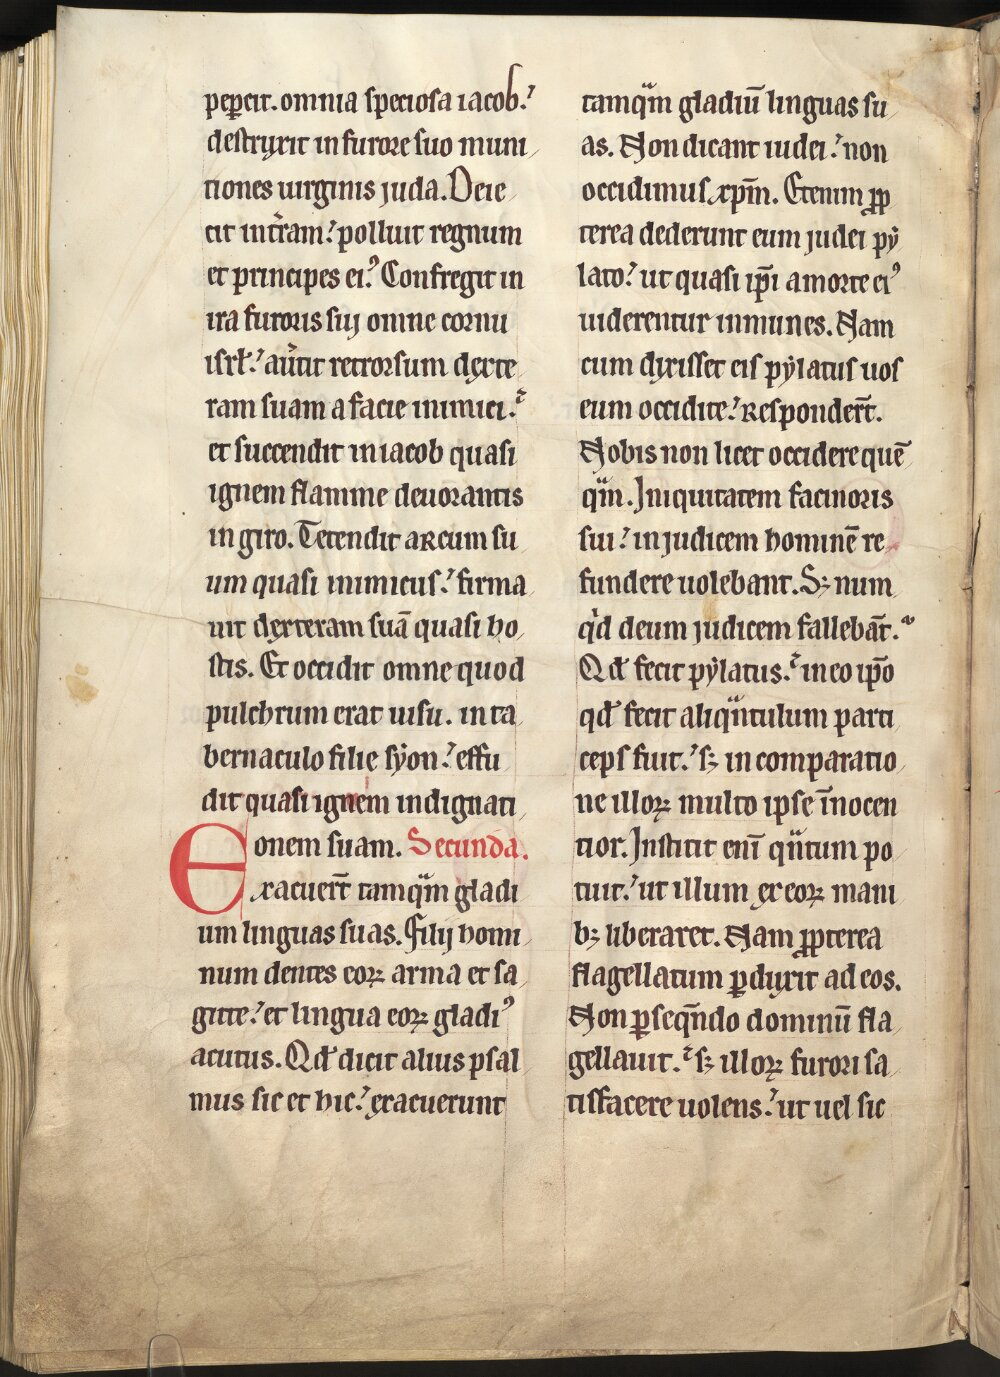 pep̱cit. omnia speciosa iacob.ˀ
destrvxit in furore suo muni
tiones uirginis juda. Deie
cit in tr̃am.ˀ polluit regnum
et principes ei.ꝰ Confregit in
ira furoris sui omne cornu
isrł.ˀ au̾tit retrorsum dexte
ram suam a facie inimici.ˀ
et succendit in iacob quasi
ignem flamme deuorantis
in giro. Tetendit arcum su
um quasi inimicus.ˀ firma
uit dexteram suā quasi ho
stis. Et occidit omne quod
pulchrum erat uisu. in ta
bernaculo filie syon.ˀ effu
dit quasi ignem indignati
onem suam. Secunda.
Exacuer̄t tamqᷓm gladi
um linguas suas. Filij homi
num dentes eoꝝ arma et sa
gitte.ˀ et lingua eoꝝ gladiꝰ
acutus. Qđ dicit alius psal
mus sic et hic.ˀ exacuerunt
tamqᷓm gladiū linguas su
as. Non dicant iudei.ˀ non
occidimus xp̄m. Etenim ꝓp
terea dederunt eum judei py
lato.ˀ ut quasi ip̄i a morte eiꝰ
uiderentur inmunes. Nam
cum dyxisset eis pylatus uos
eum occidite.ˀ Responder̄t.
Nobis non licet occidere quē
qᷓm. Iniquitatem facinoris
sui.ˀ in judicem hominē re
fundere uolebant. Sꝫ num
qͥd deum judicem fallebāt.ˀ
Qđ fecit pylatus.ˀ in eo ip̄o
qđ fecit aliqᷓntulum parti
ceps fuit.ˀ sꝫ in comparatio
ne illoꝝ multo ipse īnocen
tior. Institit enī qᷓntum po
tuit.ˀ ut illum ex eoꝝ mani
bꝫ liberaret. Nam ꝓpterea
flagellatum ꝓduxit ad eos.
Non ꝑseqn̄do dominū fla
gellauit.ˀ sꝫ illoꝝ furori sa
tisfacere uolens.ˀ ut uel sic